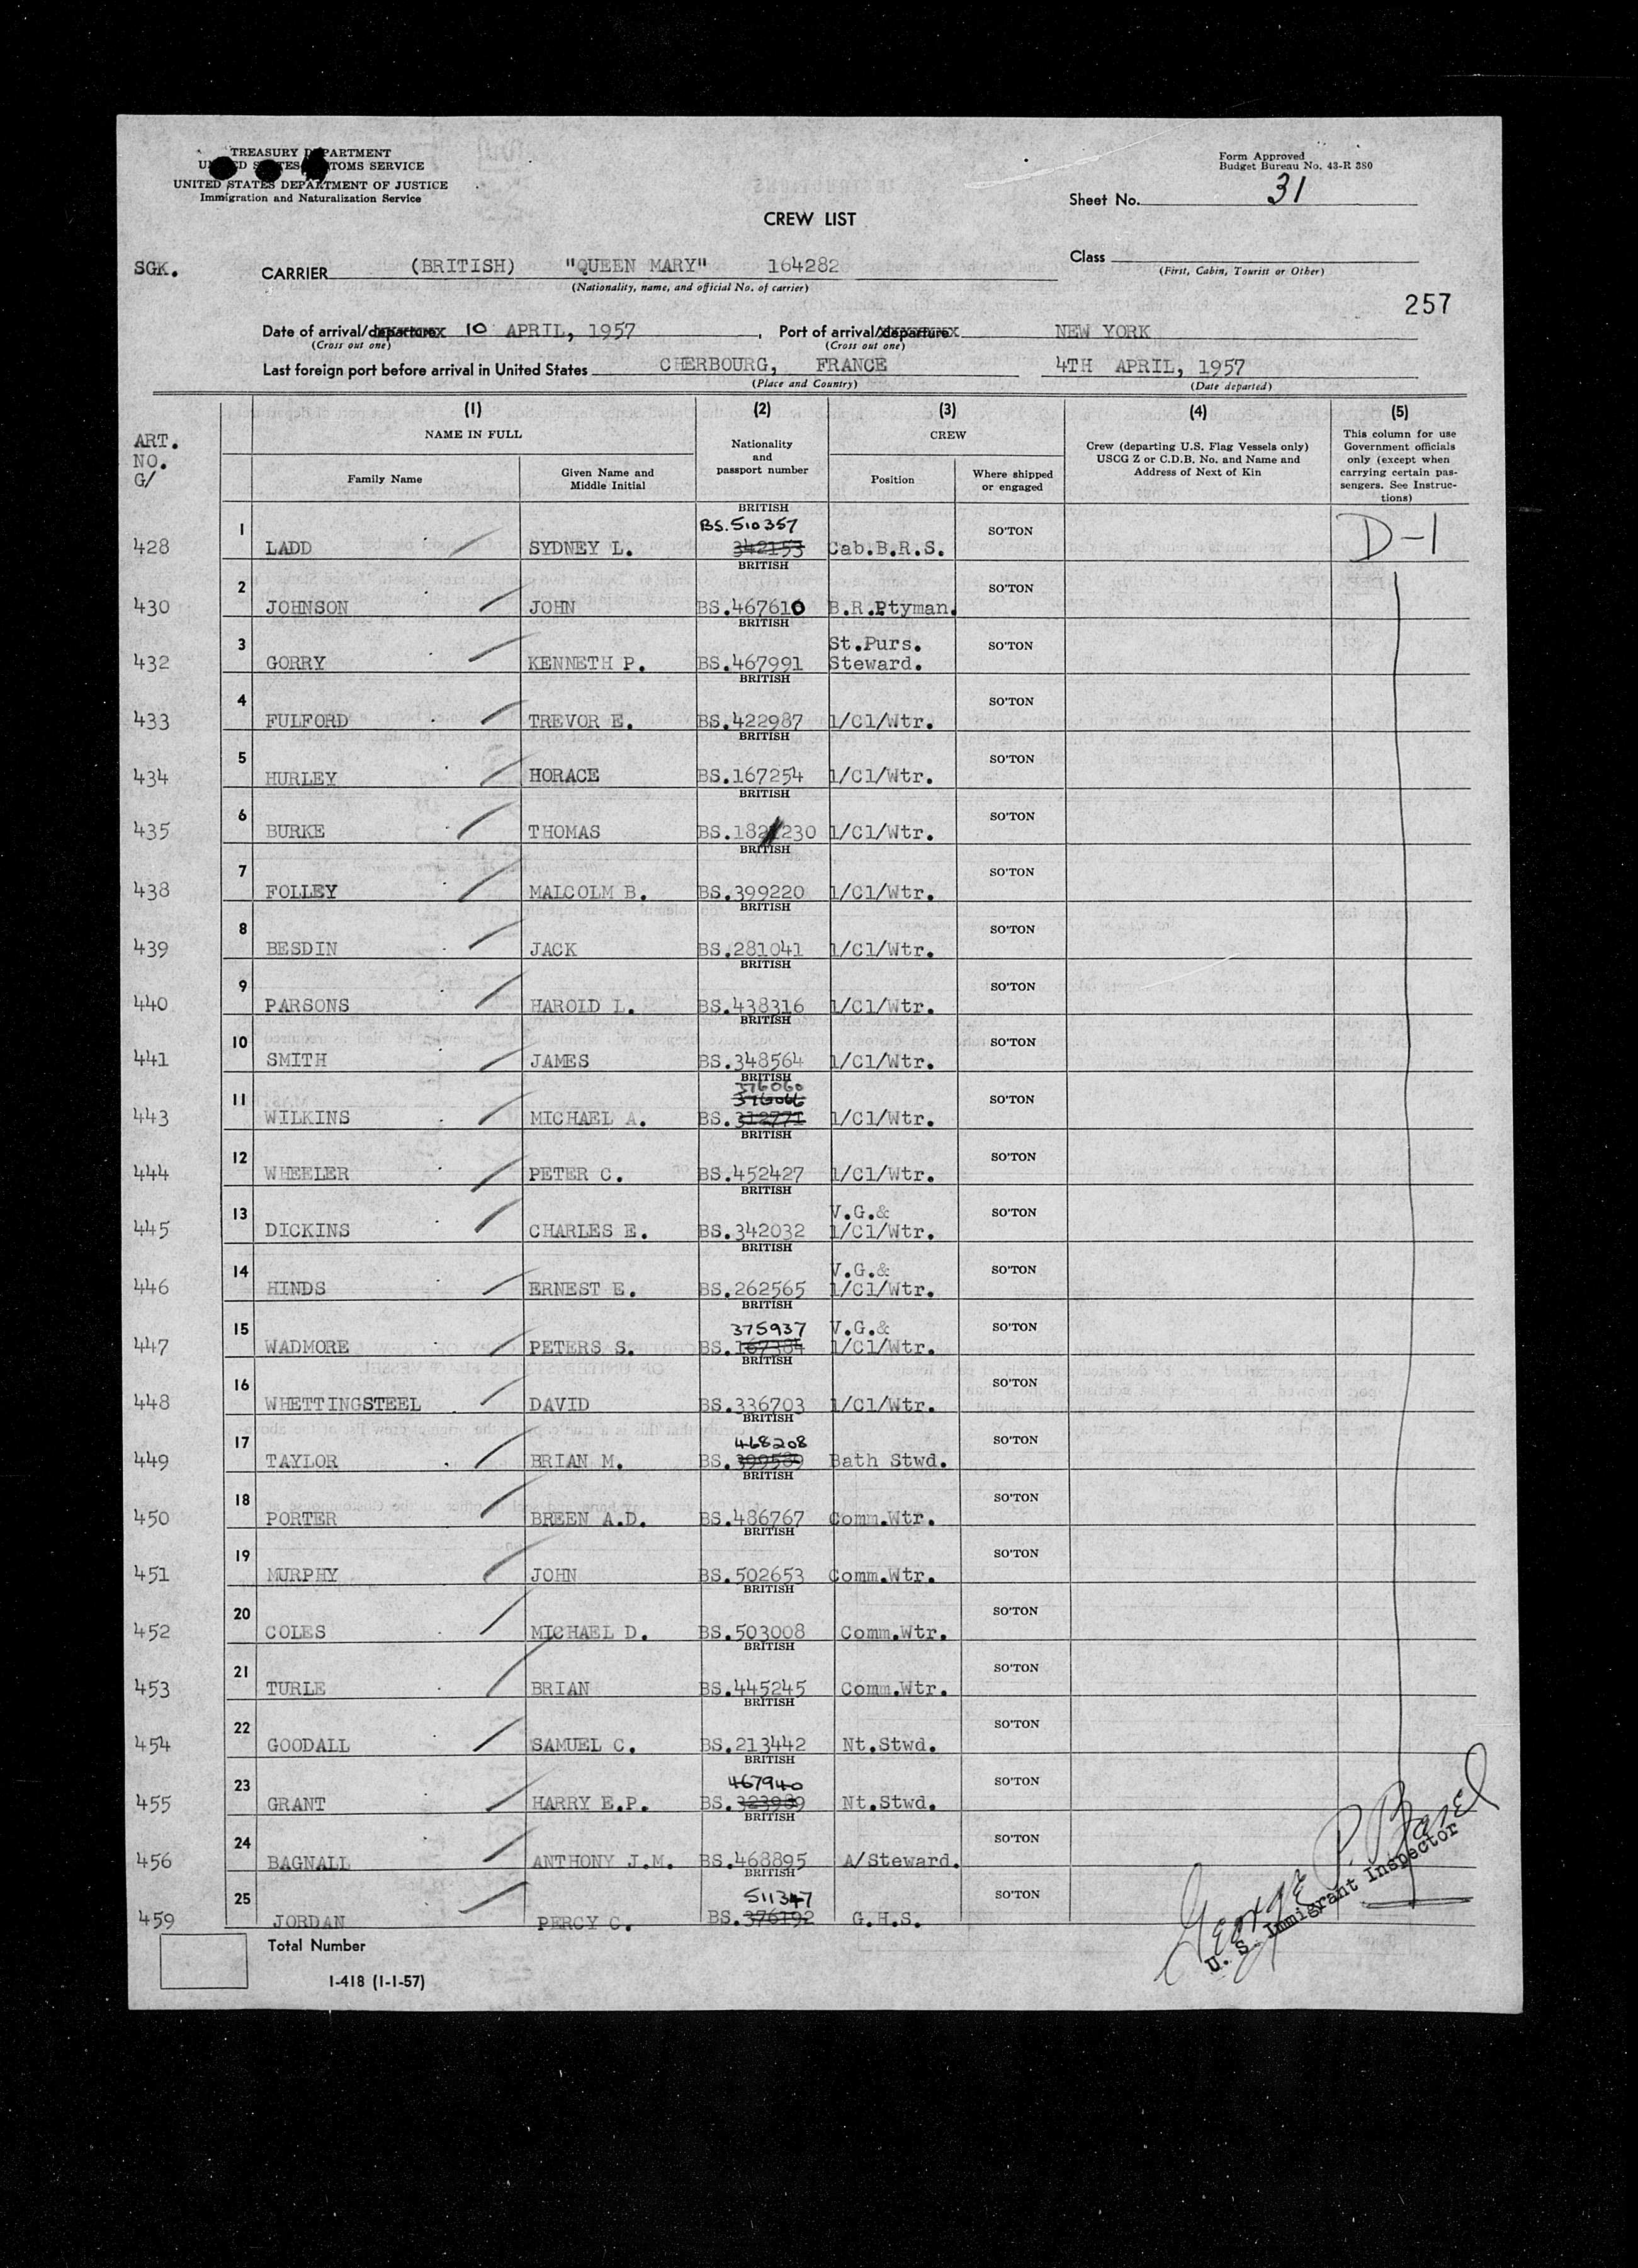 TREASURY DEPARTMENT
UNITED STATES CUSTOMS SERVICE
UNITED STATES DEPARTMENT OF JUSTICE
Immigration and Naturalization Service
Form Approved
Budget Bureau No. 43-R 380
Sheet No. 31
CREW LIST
SGK.
CARRIER (BRITISH) "QUEEN MARY" 164282
(Nationality, name, and official No. of carrier)
Class
(First, Cabin, Tourist or Other)
257
Date of arrival/departure 10 APRIL, 1957, Port of arrival/departure NEW YORK
(Cross out one) (Cross out one)
Last foreign port before arrival in United States CHERBOURG, FRANCE 4TH APRIL, 1957
(Place and Country) (Date departed)
ART. NO. G/
(1) (2) (3) (4) (5)
NAME IN FULL
Family Name
Given Name and Middle Initial
Nationality and passport number
CREW
Position
Where shipped or engaged
Crew (departing U.S. Flag Vessels only) USCG Z or C.D.B. No. and Name and Address of Next of Kin
This column for use Government officials only (except when carrying certain passengers. See Instructions)
428 1 LADD SYDNEY L. BRITISH BS.510357 342153 Cab.B.R.S. SO'TON D-1
430 2 JOHNSON JOHN BRITISH BS.467610 B.R.Ptyman. SO'TON
432 3 GORRY KENNETH P. BRITISH BS.467991 St.Purs. Steward. SO'TON
433 4 FULFORD TREVOR E. BRITISH BS.422987 1/Cl/Wtr. SO'TON
434 5 HURLEY HORACE BRITISH BS.167254 1/Cl/Wtr. SO'TON
435 6 BURKE THOMAS BRITISH BS.182230 1/Cl/Wtr. SO'TON
438 7 FOLLEY MALCOLM B. BRITISH BS.399220 1/Cl/Wtr. SO'TON
439 8 BESDIN JACK BRITISH BS.281041 1/Cl/Wtr. SO'TON
440 9 PARSONS HAROLD L. BRITISH BS.438316 1/Cl/Wtr. SO'TON
441 10 SMITH JAMES BRITISH BS.348564 1/Cl/Wtr. SO'TON
443 11 WILKINS MICHAEL A. BRITISH 376060 376066 BS.312771 1/Cl/Wtr. SO'TON
444 12 WHEELER PETER C. BRITISH BS.452427 1/Cl/Wtr. SO'TON
445 13 DICKINS CHARLES E. BRITISH BS.342032 V.G.& 1/Cl/Wtr. SO'TON
446 14 HINDS ERNEST E. BRITISH BS.262565 V.G.& 1/Cl/Wtr. SO'TON
447 15 WADMORE PETERS S. BRITISH 375937 BS.167384 V.G.& 1/Cl/Wtr. SO'TON
448 16 WHETTINGSTEEL DAVID BRITISH BS.336703 1/Cl/Wtr. SO'TON
449 17 TAYLOR BRIAN M. BRITISH 468208 BS.399589 Bath Stwd. SO'TON
450 18 PORTER BREEN A.D. BRITISH BS.486767 Comm.Wtr. SO'TON
451 19 MURPHY JOHN BRITISH BS.502653 Comm.Wtr. SO'TON
452 20 COLES MICHAEL D. BRITISH BS.503008 Comm.Wtr. SO'TON
453 21 TURLE BRIAN BRITISH BS.445245 Comm.Wtr. SO'TON
454 22 GOODALL SAMUEL C. BRITISH BS.213442 Nt.Stwd. SO'TON
455 23 GRANT HARRY E.P. BRITISH 467940 BS.323989 Nt.Stwd. SO'TON
456 24 BAGNALL ANTHONY J.M. BRITISH BS.468895 A/Steward. SO'TON
459 25 JORDAN PERCY C. BRITISH 511347 BS.376192 G.H.S. SO'TON
George P.
U. S. Immigrant Inspector
Total Number
I-418 (1-1-57)